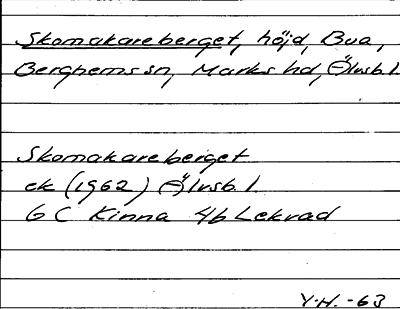 Skomakareberget, höjd, Bua,
Berghems sn, Marks hd, Älvsb. l.
Skomakareberget
ek (1962) Älvsb. l.
6 C Kinna 4b Lekvad
Y.H. -63